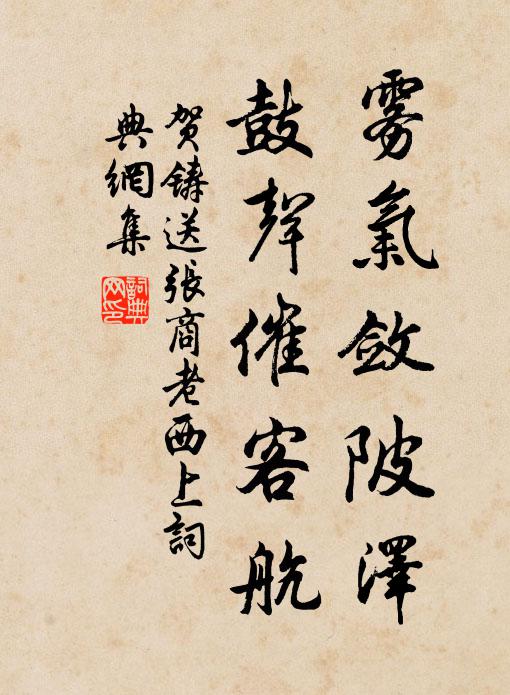 雾氣斂陂澤
鼓聲催客航
賀鑄送張商老西上詞
典網集
詞典
网印